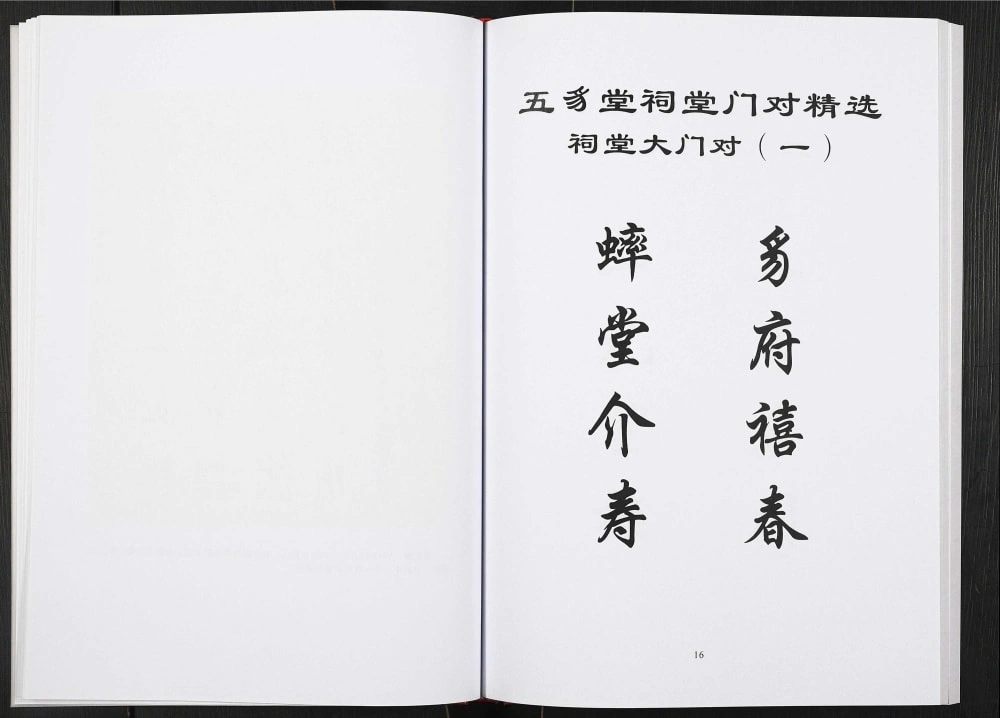 五豸堂祠堂门对精选
祠堂大门对（一）
豸府禧春
蟀堂介寿
16